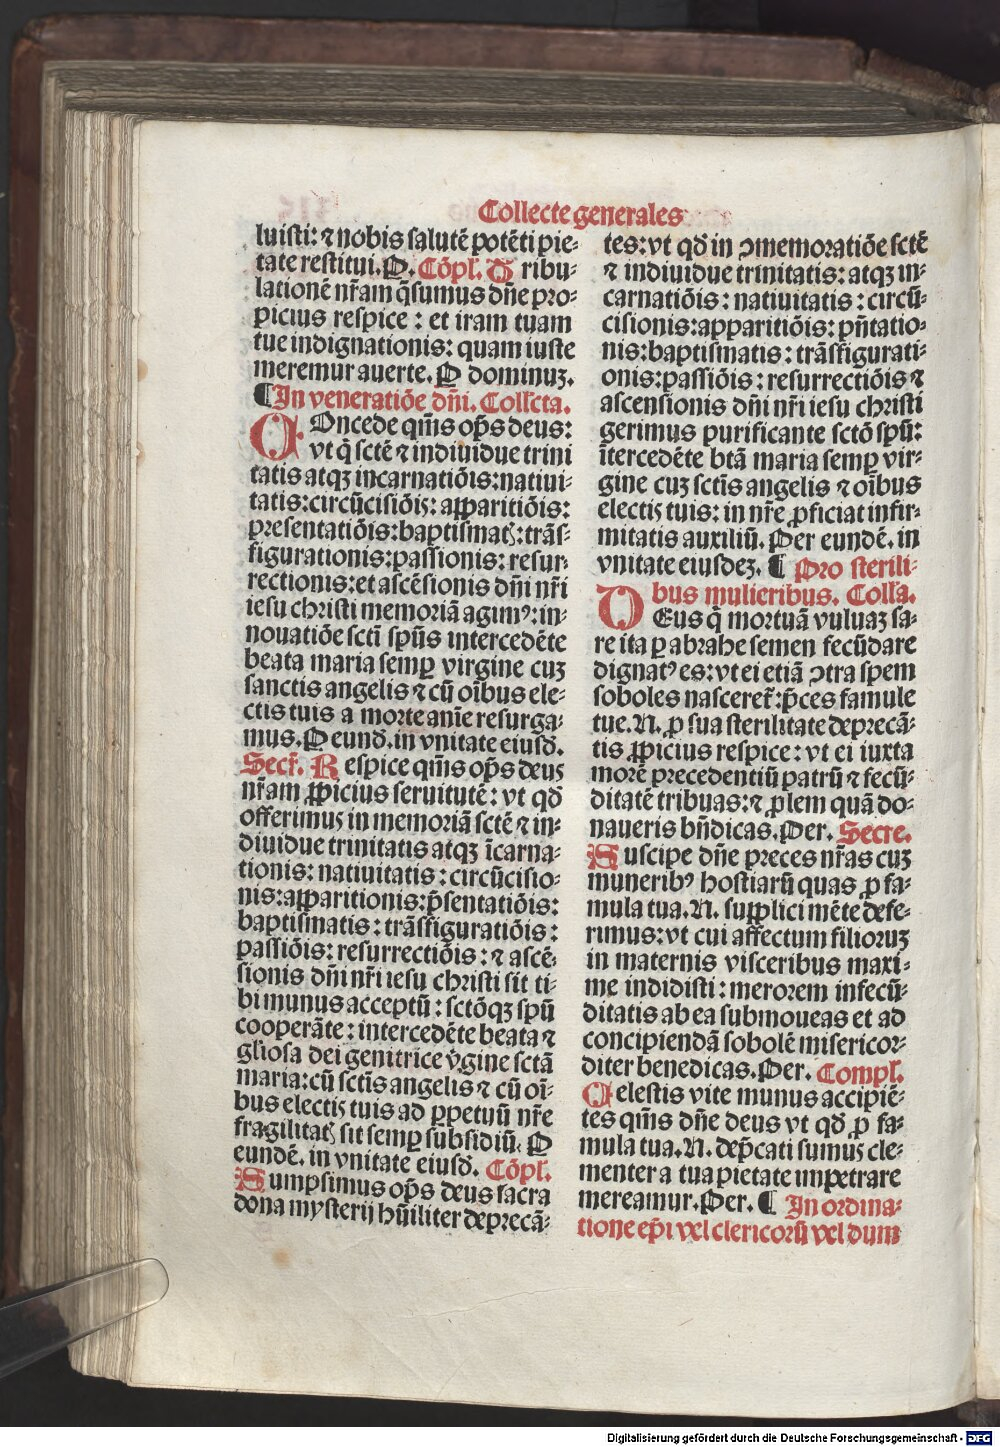 Collecte generales
luisti: ⁊ nobis salutē potēti pie⸗
tate restitui.P. Cōpl. T ribu⸗
lationē nr̄am q̄sumus dn̄e pro⸗
picius respice : et iram tuam
tue indignationis: quam iuste
meremur auerte. P dominuʒ.
¶ In veneratiōe dn̄i. Collcta.
COncede qm̄s op̄s deus:
vt q̄ sctē ⁊ indiuidue trini
tatis atqʒ incarnatiōis: natiui⸗
tatis: circūcisiōis: apparitiōis:
presentatiōis: baptismatꝭ: trās⸗
figurationis: passionis: resur⸗
rectionis: et ascēsionis dn̄i nr̄i
iesu christi memoriā agimꝰ: in⸗
nouatiōe scti sp̄us intercedēte
beata maria semꝑ virgine cuʒ
sanctis angelis ⁊ cū oībus ele⸗
ctis tuis a morte anīe resurga⸗
mus. P eund. in vnitate eiusd.
Secr̄. R espice qm̄s op̄s deus
nr̄am ꝓpicius seruitutē: vt qd̄
offerimus in memoriā sctē ⁊ in⸗
diuidue trinitatis atqʒ īcarna⸗
tionis: natiuitatis: circūcisio⸗
nis: apparitionis: p̄sentatiōis:
baptismatis: trāsfiguratiōis:
passiōis: resurrectiōis: ⁊ ascē⸗
sionis dn̄i nr̄i iesu christi sit ti⸗
bi munus acceptū: sctōqʒ sp̄u
cooperāte: intercedēte beata ⁊
gliosa dei genitrice v̄gine sctā
maria: cū sctīs angelis ⁊ cū oī⸗
bus electis tuis ad ꝑpetuū nr̄e
fragilitatꝭ sit semꝑ subsidiū. P
eundē. in vnitate eiusd̄. Cōpl.
S umpsimus op̄s deus sacra
dona mysterij hūiliter deprecā⸗
tes: vt qd̄ in ↄmemoratiōe sctē
⁊ indiuidue trinitatis: atqʒ in⸗
carnatiōis: natiuitatis: circū⸗
cisionis: apparitiōis: pn̄tatio⸗
nis: baptismatis: trāsfigurati⸗
onis: passiōis: resurrectiōis ⁊
ascensionis dn̄i nr̄i iesu christi
gerimus purificante sctō sp̄u:
ītercedēte btā maria semꝑ vir⸗
gine cuʒ sctīs angelis ⁊ oībus
electis tuis: in nr̄e ꝓficiat infir⸗
mitatis auxiliū. Per eundē. in
vnitate eiusdeʒ. ¶ Pro sterili⸗
bus mulieribus. Coll̄a.
DEus q̄ mortuā vuluaʒ sa⸗
re ita ꝑ abrahe semen fecūdare
dignatꝰ es: vt ei etiā ↄtra spem
soboles nasceret᷑: p̄ces famule
tue. N. ꝓ sua sterilitate deprecā⸗
tis ꝓpicius respice: vt ei iuxta
morē precedentiū patrū ⁊ fecū⸗
ditatē tribuas: ⁊ ꝓlem quā do⸗
naueris bn̄dicas. Per. Secre.
S uscipe dn̄e preces nr̄as cuʒ
muneribꝰ hostiarū quas ꝓ fa⸗
mula tua. N. supplici mēte defe⸗
rimus: vt cui affectum filioruʒ
in maternis visceribus maxi⸗
me indidisti: merorem infecū⸗
ditatis ab ea submoueas et ad
concipiendā sobolē misericor⸗
diter benedicas. Per. Compl.
C elestis vite munus accipiē⸗
tes qm̄s dn̄e deus vt qd̄ ꝓ fa⸗
mula tua. N. dep̄cati sumus cle⸗
menter a tua pietate impetrare
mereamur. Per. ¶ In ordina⸗
tione ep̄i vel clericorū vel dum
Digitalisierung gefördert durch die Deutsche Forschungsgemeinschaft - DFG